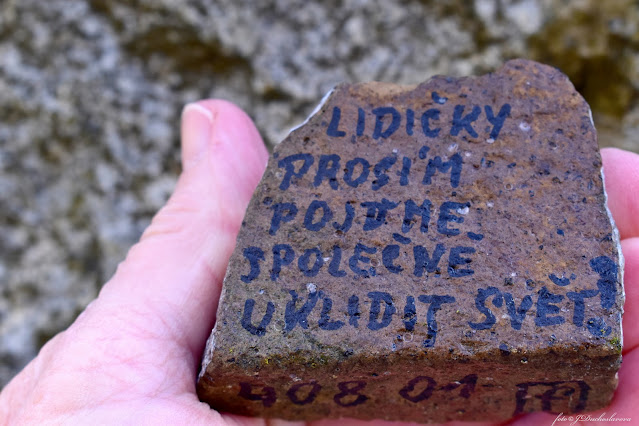 LIDIČKY
PROSÍM
POJĎME
SPOLEČNĚ
UKLIDIT SVĚT!
408 01
foto © J.Duchoslavova